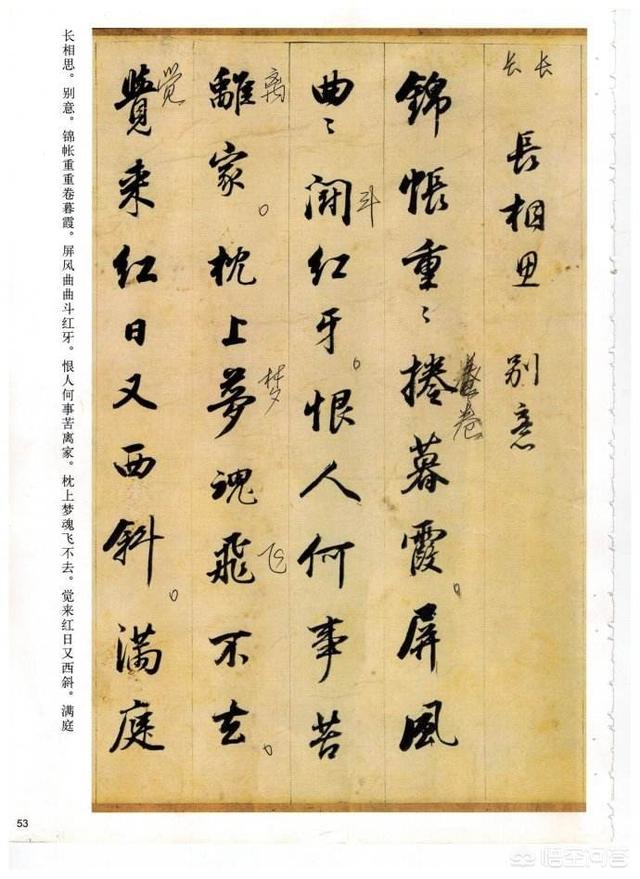 长 长
長相思 別意
錦帳重〻捲暮霞。屏風
卷
曲〻鬪红牙。恨人何事苦
斗
離家。枕上夢魂飛不去。
离
梦
飞
覺来红日又西斜。滿庭
觉
长相思。别意。锦帐重重卷暮霞。屏风曲曲斗红牙。恨人何事苦离家。枕上梦魂飞不去。觉来红日又西斜。满庭
53
悟空问答